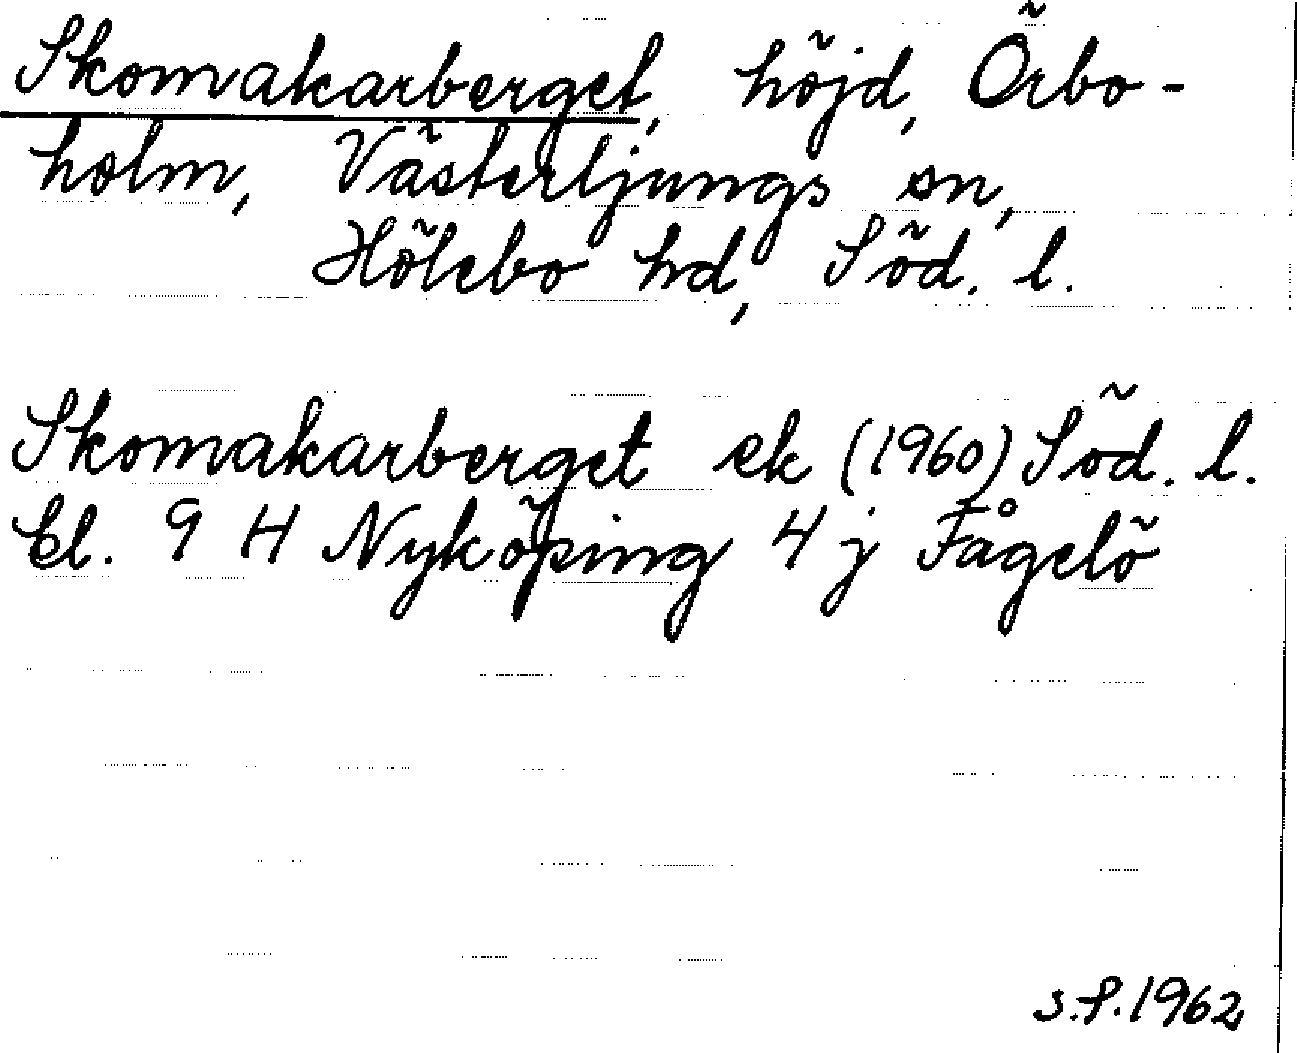 Skomakarberget, höjd, Örbo-
holm, Västerljungs sn,
Hölebo hd, Söd. l.
Skomakarberget ek (1960) Söd. l.
bl. 9 H Nyköping 4 j Fågelö
S.P. 1962